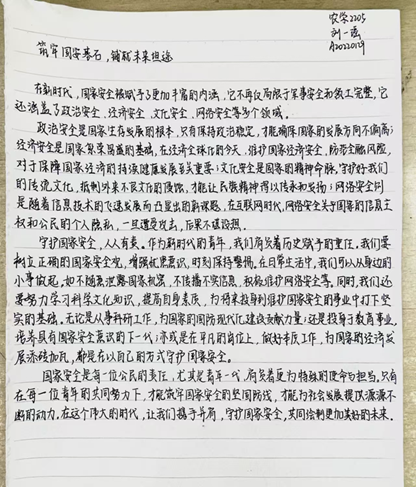 农学2205
刘一
A2022019
筑牢国安基石，铺就未来坦途
在新时代，国家安全被赋予了更加丰富的内涵，它不再仅局限于军事安全和领土完整，它
还涵盖了政治安全、经济安全、文化安全、网络安全等多个领域。
政治安全是国家生存发展的根本，只有保持政治稳定，才能确保国家的发展方向不偏离；
经济安全是国家繁荣昌盛的基础，在经济全球化的今天，维护国家经济安全，防范金融风险，
对于保障国家经济的持续健康发展至关重要；文化安全是国家的精神命脉，守护好我们
的传统文化，抵制外来不良文化的侵蚀，才能让民族精神得以传承和发扬；网络安全则
是随着信息技术的飞速发展而凸显出的新课题，在互联网时代，网络安全关乎国家的信息主
权和公民的个人隐私，一旦遭受攻击，后果不堪设想。
守护国家安全，人人有责。作为新时代的青年，我们肩负着历史赋予的重任，我们要
树立正确的国家安全观，增强忧患意识，时刻保持警惕，在日常生活中，我们可以从身边的
小事做起，如不随意泄露国家机密，不传播不实信息，积极维护网络安全等。同时，我们还
要努力学习科学文化知识，提高自身素质，为将来投身到维护国家安全的事业中打下坚
实的基础。无论是从事科研工作，为国家的国防现代化建设贡献力量；还是投身于教育事业，
培养具有国家安全意识的下一代；亦或是在平凡的岗位上，做好本职工作，为国家的经济发
展添砖加瓦，都是在以自己的方式守护国家安全。
国家安全是每一位公民的责任，尤其是青年一代，肩负着更为特殊的使命与担当。只有
在每一位青年的共同努力下，才能筑牢国家安全的坚固防线，才能为社会发展提供源源不
断的动力。在这个伟大的时代，让我们携手并肩，守护国家安全，共同绘制更加美好的未来。